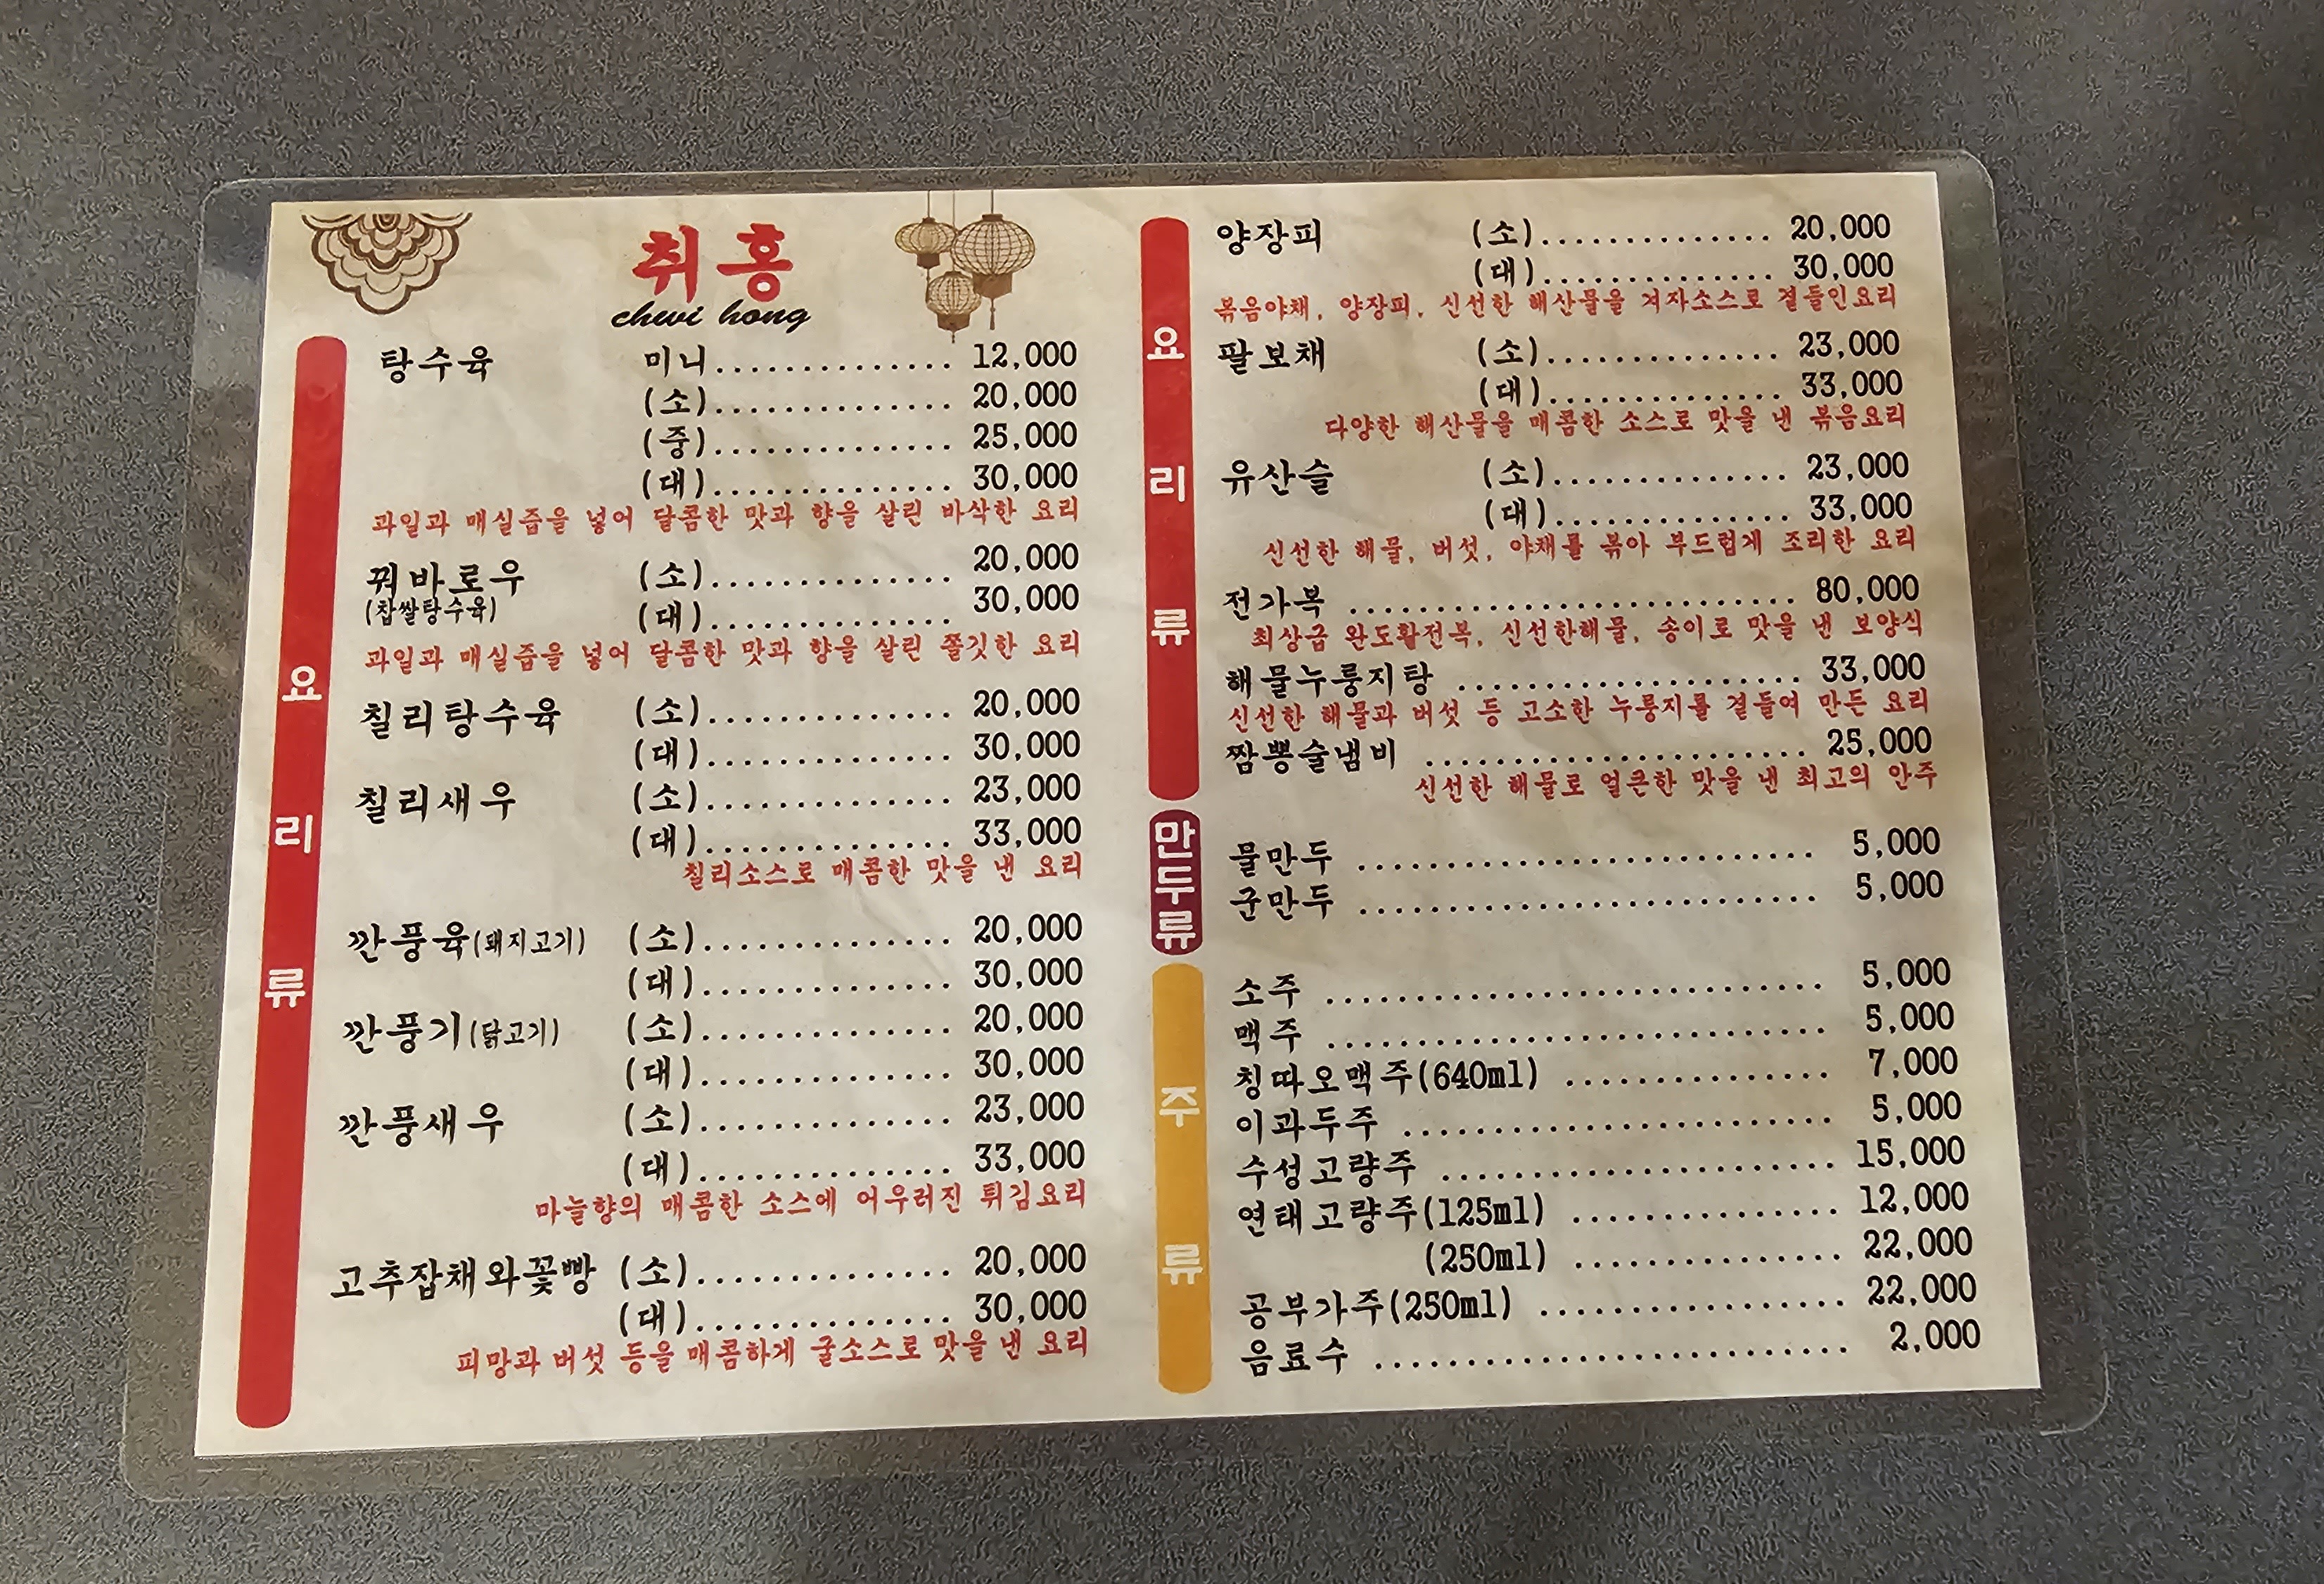 취홍
chwi hong
요리류
탕수육 미니.............. 12,000
(소).............. 20,000
(중).............. 25,000
(대).............. 30,000
과일과 매실즙을 넣어 달콤한 맛과 향을 살린 바삭한 요리
꿔바로우 (소).............. 20,000
(찹쌀탕수육) (대).............. 30,000
과일과 매실즙을 넣어 달콤한 맛과 향을 살린 쫄깃한 요리
칠리탕수육 (소).............. 20,000
(대).............. 30,000
칠리새우 (소).............. 23,000
(대).............. 33,000
칠리소스로 매콤한 맛을 낸 요리
깐풍육(돼지고기) (소).............. 20,000
(대).............. 30,000
깐풍기(닭고기) (소).............. 20,000
(대).............. 30,000
깐풍새우 (소).............. 23,000
(대).............. 33,000
마늘향의 매콤한 소스에 어우러진 튀김요리
고추잡채와꽃빵 (소).............. 20,000
(대).............. 30,000
피망과 버섯 등을 매콤하게 굴소스로 맛을 낸 요리
요리류
양장피 (소).............. 20,000
(대).............. 30,000
볶음야채, 양장피, 신선한 해산물을 겨자소스로 곁들인요리
팔보채 (소).............. 23,000
(대).............. 33,000
다양한 해산물을 매콤한 소스로 맛을 낸 볶음요리
유산슬 (소).............. 23,000
(대).............. 33,000
신선한 해물, 버섯, 야채를 볶아 부드럽게 조리한 요리
전가복 ........................... 80,000
최상급 완도활전복, 신선한해물, 송이로 맛을 낸 보양식
해물누룽지탕 ..................... 33,000
신선한 해물과 버섯 등 고소한 누룽지를 곁들여 만든 요리
짬뽕술냄비 ....................... 25,000
신선한 해물로 얼큰한 맛을 낸 최고의 안주
만두류
물만두 ............................ 5,000
군만두 ............................ 5,000
주류
소주 .............................. 5,000
맥주 .............................. 5,000
칭따오맥주(640ml) ................ 7,000
이과두주 .......................... 5,000
수성고량주 ........................ 15,000
연태고량주(125ml) ................ 12,000
(250ml) ................ 22,000
공부가주(250ml) ................... 22,000
음료수 ............................. 2,000